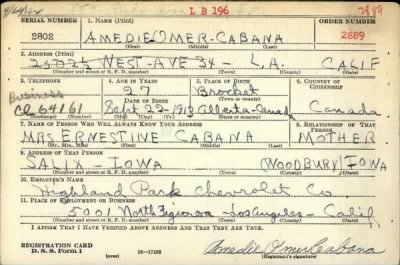 L B 196
SERIAL NUMBER 1. NAME (Print) ORDER NUMBER
2802 AMEDIE OMER-CABANA 2889
(First) (Middle) (Last)
2. ADDRESS (Print)
WEST-AVE 34 - L.A. CALIF
(Number and street or R. F. D. number) (Town) (County) (State)
3. TELEPHONE 4. AGE IN YEARS 5. PLACE OF BIRTH 6. COUNTRY OF CITIZENSHIP
Business 27 Brocket
DATE OF BIRTH
64161 Sept 22-1913 Alberta-Canada Canada
(Exchange) (Number) (Mo.) (Day) (Yr.) (State or country)
7. NAME OF PERSON WHO WILL ALWAYS KNOW YOUR ADDRESS 8. RELATIONSHIP OF THAT PERSON
MRS ERNESTINE CABANA MOTHER
(Mr., Mrs., Miss) (First) (Middle) (Last)
9. ADDRESS OF THAT PERSON
SALIX - IOWA (WOODBURY) IOWA
(Number and street or R. F. D. number) (Town) (County) (State)
10. EMPLOYER'S NAME
Highland Park Chevrolet Co
11. PLACE OF EMPLOYMENT OR BUSINESS
5001 North Figueroa - Los Angeles - Calif
(Number and street or R. F. D. number) (Town) (County) (State)
I AFFIRM THAT I HAVE VERIFIED ABOVE ANSWERS AND THAT THEY ARE TRUE.
REGISTRATION CARD
D. S. S. Form 1 (over) 16-17105 Amedie Omer Cabana
(Registrant's signature)